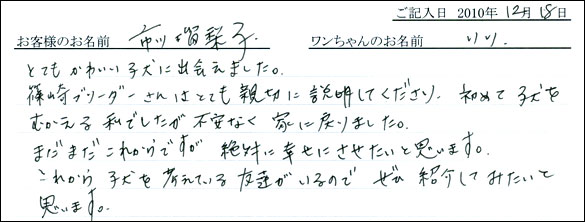 ご記入日 2010年 12月 18日
お客様のお名前 市川 瑠梨子 ワンちゃんのお名前 リリ
とてもかわいい子犬に出会えました。
篠崎ブリーダーさんはとても親切に説明してくださり、初めて子犬を
むかえる私でしたが不安なく家に戻りました。
まだまだこれからですが絶対に幸せにさせたいと思います。
これから子犬を考えている友達がいるのでぜひ紹介してみたいと
思います。